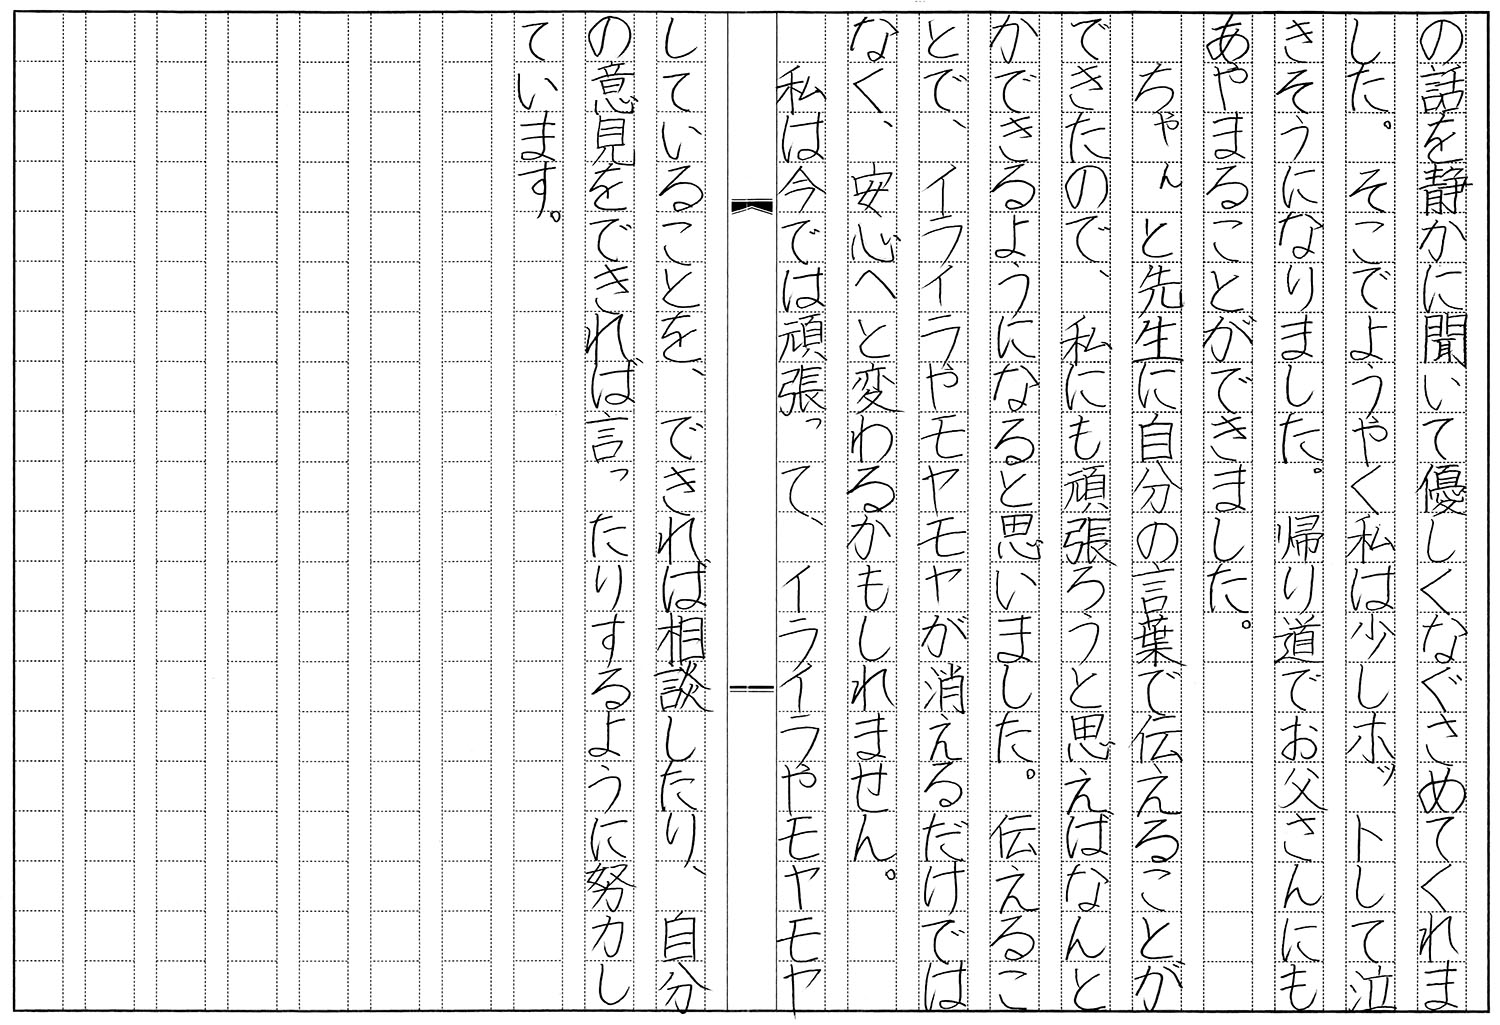 の話を静かに聞いて優しくなぐさめてくれま
した。そこでようやく私は少しホットして泣
きそうになりました。帰り道でお父さんにも
あやまることができました。
ちゃんと先生に自分の言葉で伝えることが
できたので、私にも頑張ろうと思えばなんと
かできるようになると思いました。伝えるこ
とで、イライラやモヤモヤが消えるだけでは
なく、安心へと変わるかもしれません。
私は今では頑張って、イライラやモヤモヤ
していることを、できれば相談したり、自分
の意見をできれば言ったりするように努力し
ています。